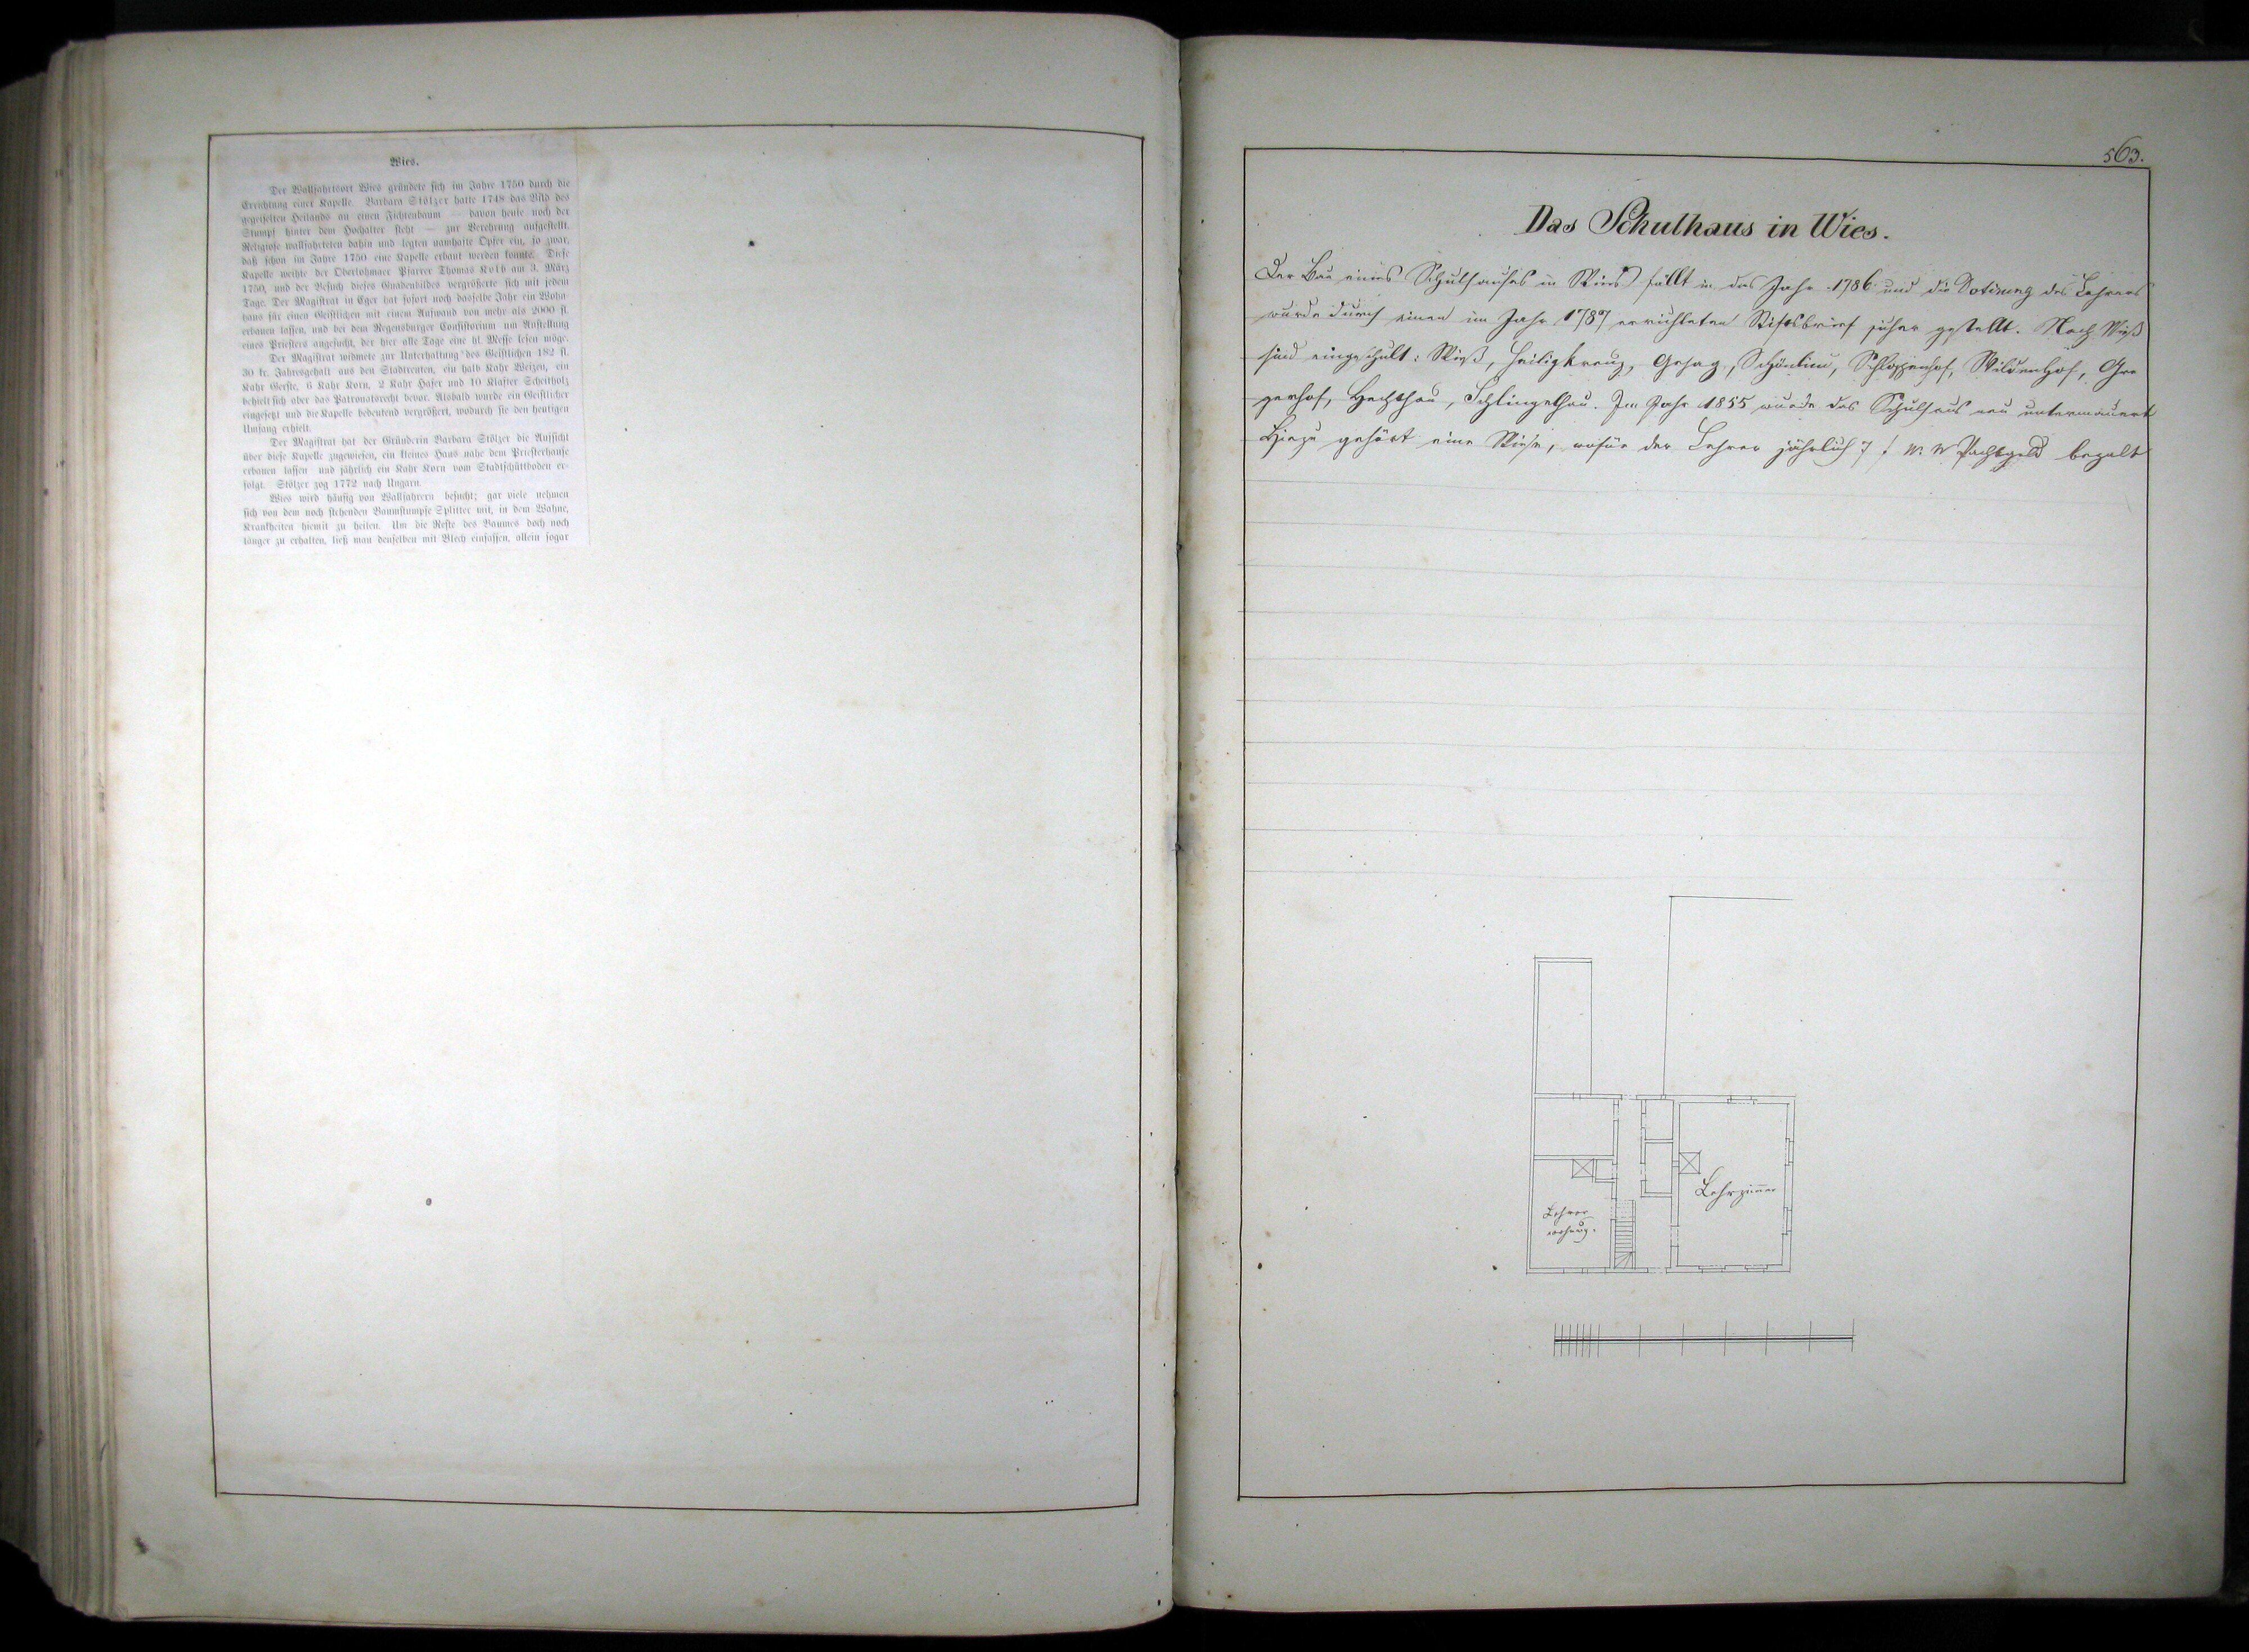 Wies.
Der Wallfahrtsort Wies gründete sich im Jahre 1750 durch die
Errichtung einer Kapelle. Barbara Stölzer hatte 1748 das Bild des
gegeißelten Heilands an einen Fichtenbaum — davon heute noch der
Stumpf hinter dem Hochalter steht — zur Verehrung aufgestellt.
Religiose wallfahrteten dahin und legten namhafte Opfer ein, so zwar,
daß schon im Jahre 1750 eine Kapelle erbaut werden konnte. Diese
Kapelle weihte der Oberlohmaer Pfarrer Thomas Kolb am 3. März
1750, und der Besuch dieses Gnadenbildes vergrößerte sich mit jedem
Tage. Der Magistrat in Eger hat sofort noch dasselbe Jahr ein Wohn-
haus für einen Geistlichen mit einem Aufwand von mehr als 2000 fl.
erbauen lassen, und bei dem Regensburger Consistorium um Anstellung
eines Priesters angesucht, der hier alle Tage eine hl. Messe lesen möge.
Der Magistrat widmete zur Unterhaltung des Geistlichen 182 fl.
30 kr. Jahresgehalt aus den Stadtrenten, ein halb Kahr Weizen, ein
Kahr Gerste, 6 Kahr Korn, 2 Kahr Hafer und 10 Klafter Scheitholz
behielt sich aber das Patronatsrecht bevor. Alsbald wurde ein Geistlicher
eingesetzt und die Kapelle bedeutend vergrößert, wodurch sie den heutigen
Umfang erhielt.
Der Magistrat hat der Gründerin Barbara Stölzer die Aufsicht
über diese Kapelle zugewiesen, ein kleines Haus nahe dem Priesterhause
erbauen lassen und jährlich ein Kahr Korn vom Stadtschüttboden er-
folgt. Stölzer zog 1772 nach Ungarn.
Wies wird häufig von Wallfahrern besucht; gar viele nehmen
sich von dem noch stehenden Baumstumpfe Splitter mit, in dem Wahne,
Krankheiten hiemit zu heilen. Um die Reste des Baumes doch noch
länger zu erhalten, ließ man denselben mit Blech einfassen, allein sogar
563.
Das Schulhaus in Wies.
Der Bau eines Schulhauses in Wies fällt in das Jahr 1786 und die Dotirung des Lehrers
wurde durch einen im Jahr 1787 errichteten Stiftsbrief sicher gestellt. Nach Wieß
sind eingeschult: Wieß, Heiligkreuz, Gehag, Schönlind, Schloppenhof, Wildenhof, Gre
gerhof, Hechthau, Schlingelhau. Im Jahr 1855 wurde das Schulhaus neu untermauert
Hiezu gehört eine Wiese, wofür der Lehrer jährlich 7 f W. W Pachtgeld bezalt
Lehrzimmer
Lehrer
wohnung.